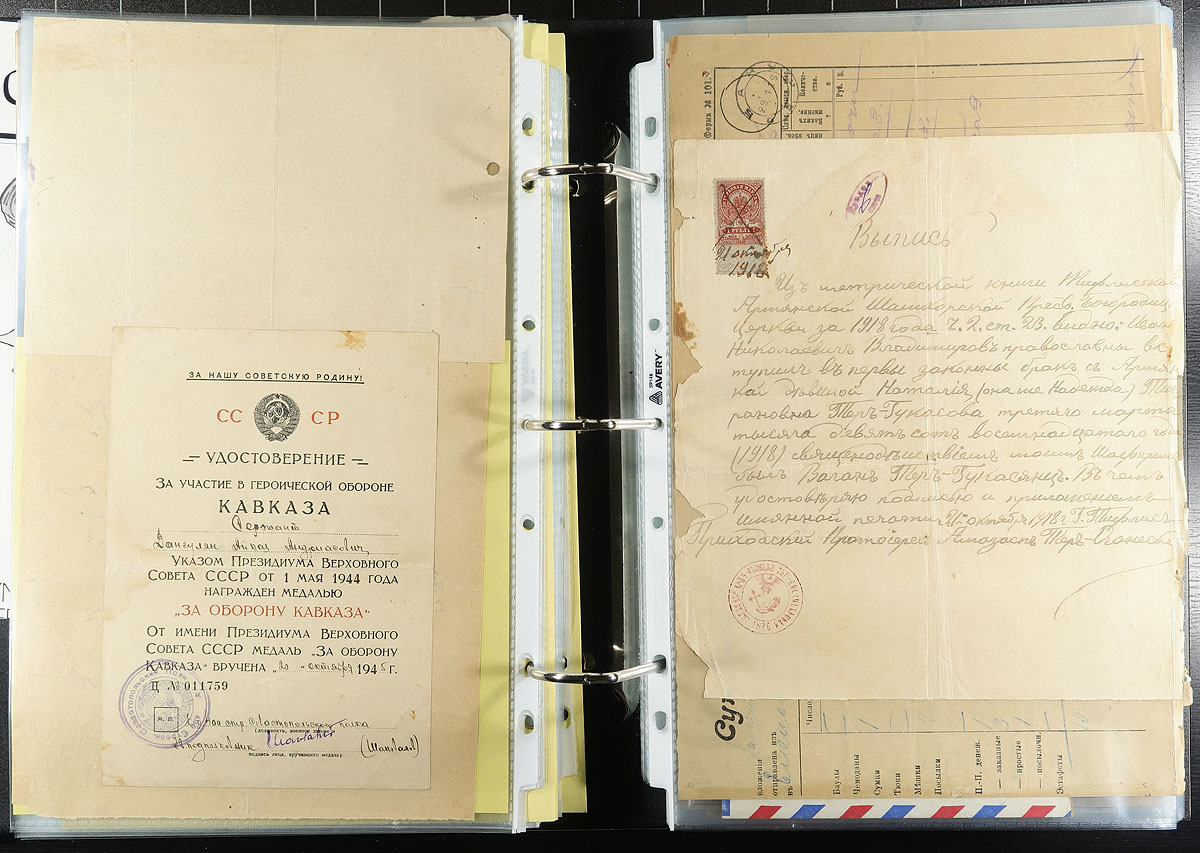 ЗА НАШУ СОВЕТСКУЮ РОДИНУ!
СС СР
УДОСТОВЕРЕНИЕ
ЗА УЧАСТИЕ В ГЕРОИЧЕСКОЙ ОБОРОНЕ
КАВКАЗА
Сержант
УКАЗОМ ПРЕЗИДИУМА ВЕРХОВНОГО
СОВЕТА СССР ОТ 1 МАЯ 1944 ГОДА
НАГРАЖДЕН МЕДАЛЬЮ
„ЗА ОБОРОНУ КАВКАЗА“
ОТ ИМЕНИ ПРЕЗИДИУМА ВЕРХОВНОГО
СОВЕТА СССР МЕДАЛЬ „ЗА ОБОРОНУ
КАВКАЗА“ ВРУЧЕНА „20“ октября 1945 г.
№ 011759
М. П.
Севастопольского полка
(должность, военное звание)
подполковник (Шаповалов)
подпись лица, вручившего медаль)
AVERY
Форма № 101.
Руб. К.
1 РУБЛЬ
21 октября
1918
Выпись
Изъ метрической книги Тифлисской
Армянской Шамхорской Пресв. Богородиц
Церкви за 1918 года ч. 2. ст. 23. видно: Иван
Николаевичъ Владимировъ православны вс
тупилъ въ первы законны бракъ съ Армян
кой дѣвицой Наталія (она же Надежда) Ти
рановна Теръ-Гукасова третяго марта
тысяча девятьсотъ восемнадцатаго го
(1918) священодѣйствіемъ Шаферомъ
былъ Ваганъ Теръ-Гукасянцъ. Въ чемъ
удостовѣряю подписью и приложеніемъ
имянной печати 21 октября 1918 г. Г. Тифлисъ
Приходскій Протоіерей
Баулы
Чемоданы
Сумки
Тюки
Мѣшки
Посылки
П.-П. денеж.
— заказные
— простые
— посылочн.
Эстафеты
отправлена изъ
въ